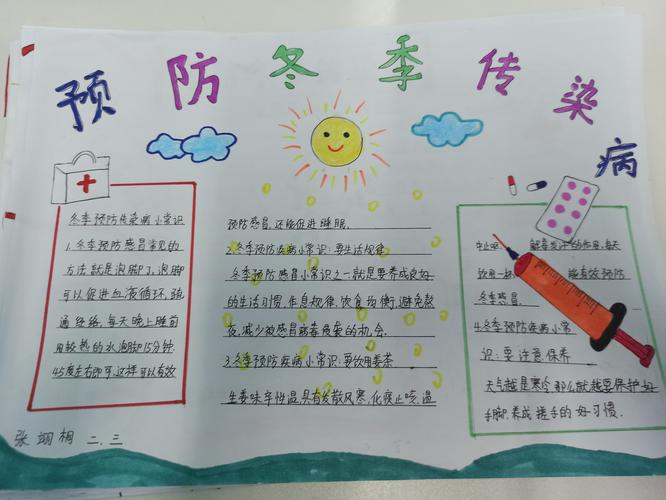 预防冬季传染病
冬季预防传染病小常识
1.冬季预防感冒常见的
方法就是泡脚了,泡脚
可以促进血液循环,疏
通经络,每天晚上睡前
用较热的水泡脚15分钟
45度左右即可,这样可以有效
预防感冒,还能促进睡眠.
2.冬季预防疾病小常识:要生活规律
冬季预防感冒小常识之一就是要养成良好
的生活习惯,作息规律,饮食均衡,避免熬
夜,减少被感冒病毒侵袭的机会.
3.冬季预防疾病小常识:要饮用姜茶
生姜味辛性温,具有发散风寒,化痰止咳,温
中止呕,解毒 的作用,每天
饮用一杯 能有效预防
冬季感冒.
4.冬季预防疾病小常
识:要注意保养
天气越是寒冷,那么就越要保护好
手脚,养成搓手的好习惯.
张翊桐 二.三